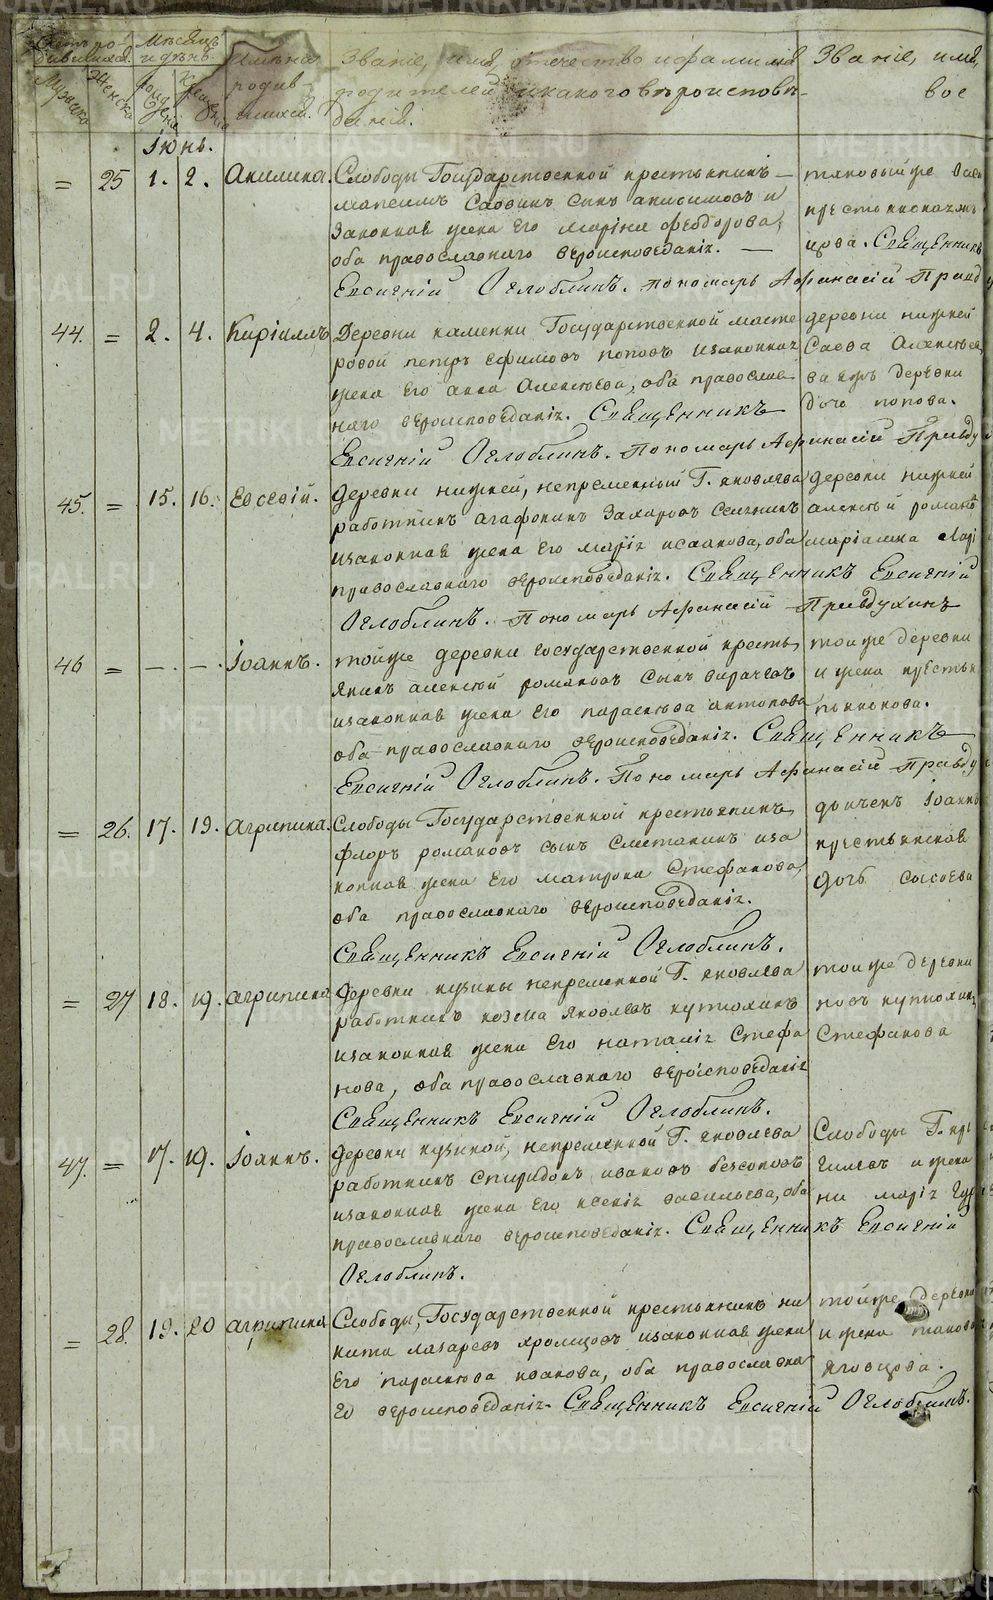 Счетъ ро-
дившихся.
Мѣсяцъ
и день.
Имена
родив-
шихся.
Званіе, имя, отечество и фамилія
родителей, и какого вѣроисповѣ-
данія.
Званіе, имя,
вос
Мужеска
Женска
рожденія
крещенія
Іюнь.
= 25 1. 2. Акилина. Слободы Государственной крестьянинъ
Максимъ Саввинъ сынъ Анисимовъ и
законная жена его Маріна Феодорова,
оба православнаго вѣроисповѣданія.
таковыйже
Священникъ
Евсигній Оглоблинъ. Пономарь Афанасій Правд
44. = 2. 4. Киріиллъ Деревни Каменки Государственной масте
ровой Петръ Ефимовъ Поповъ и законная
жена его Анна Алексѣева, оба православ
наго вѣроисповѣданія. Священникъ
деревни нижней
Савва Алексѣев
деревни
дочь Попова.
Евсигній Оглоблинъ. Пономарь Афанасій Правду
45. = 15. 16. Евсевій. Деревни нижней, непременный Г. Яковлева
работникъ Агафоникъ Захаровъ
и законная жена его Марія Исакова, оба
православнаго вѣроисповѣданія. Священникъ Евсигній
Оглоблинъ. Пономарь Афанасій Правдухинъ
деревни нижней
Алексѣй Романо
46 = —. —. Іоаннъ. тойже деревни государственной кресть
янинъ Алексѣй Романовъ сынъ
и законная жена его Параскева Антонова
оба православнаго вѣроисповѣданія. Священникъ
тойже деревни
и жена крестьян
Евсигній Оглоблинъ. Пономарь Афанасій Правду
= 26. 17. 19. Агрипина. Слободы Государственной крестьянинъ
Флоръ Романовъ сынъ Сметанинъ и за
конная жена его Матрона Стефанова,
оба православнаго вѣроисповѣданія.
Священникъ Евсигній Оглоблинъ.
дьячекъ Іоаннъ
крестьянская
дочь Сысоева
= 27 18. 19. Агрипина Деревни Кузины непременной Г. Яковлева
работникъ Козма Яковлевъ Кутюхинъ
и законная жена его Наталія Стефа
нова, оба православнаго вѣроисповѣданія
Священникъ Евсигній Оглоблинъ.
тойже деревни
Стефанова
47. = 17. 19. Іоаннъ. Деревни Кузиной, непременной Г. Яковлева
работникъ Спиридонъ Ивановъ Безсоновъ
и законная жена его Ксенія Васильева, оба
православнаго вѣроисповѣданія. Священникъ Евсигній
Оглоблинъ.
Слободы Г. кре
и жена
= 28. 19. 20 Агрипина Слободы, Государственной крестьянинъ Ни
кита Лазаревъ Яромцовъ и законная жена
его Параскева Иванова, оба православна
го вѣроисповѣданія Священникъ Евсигній Оглоблинъ.
тойже деревни
и жена
METRIKI.GASO-URAL.RU